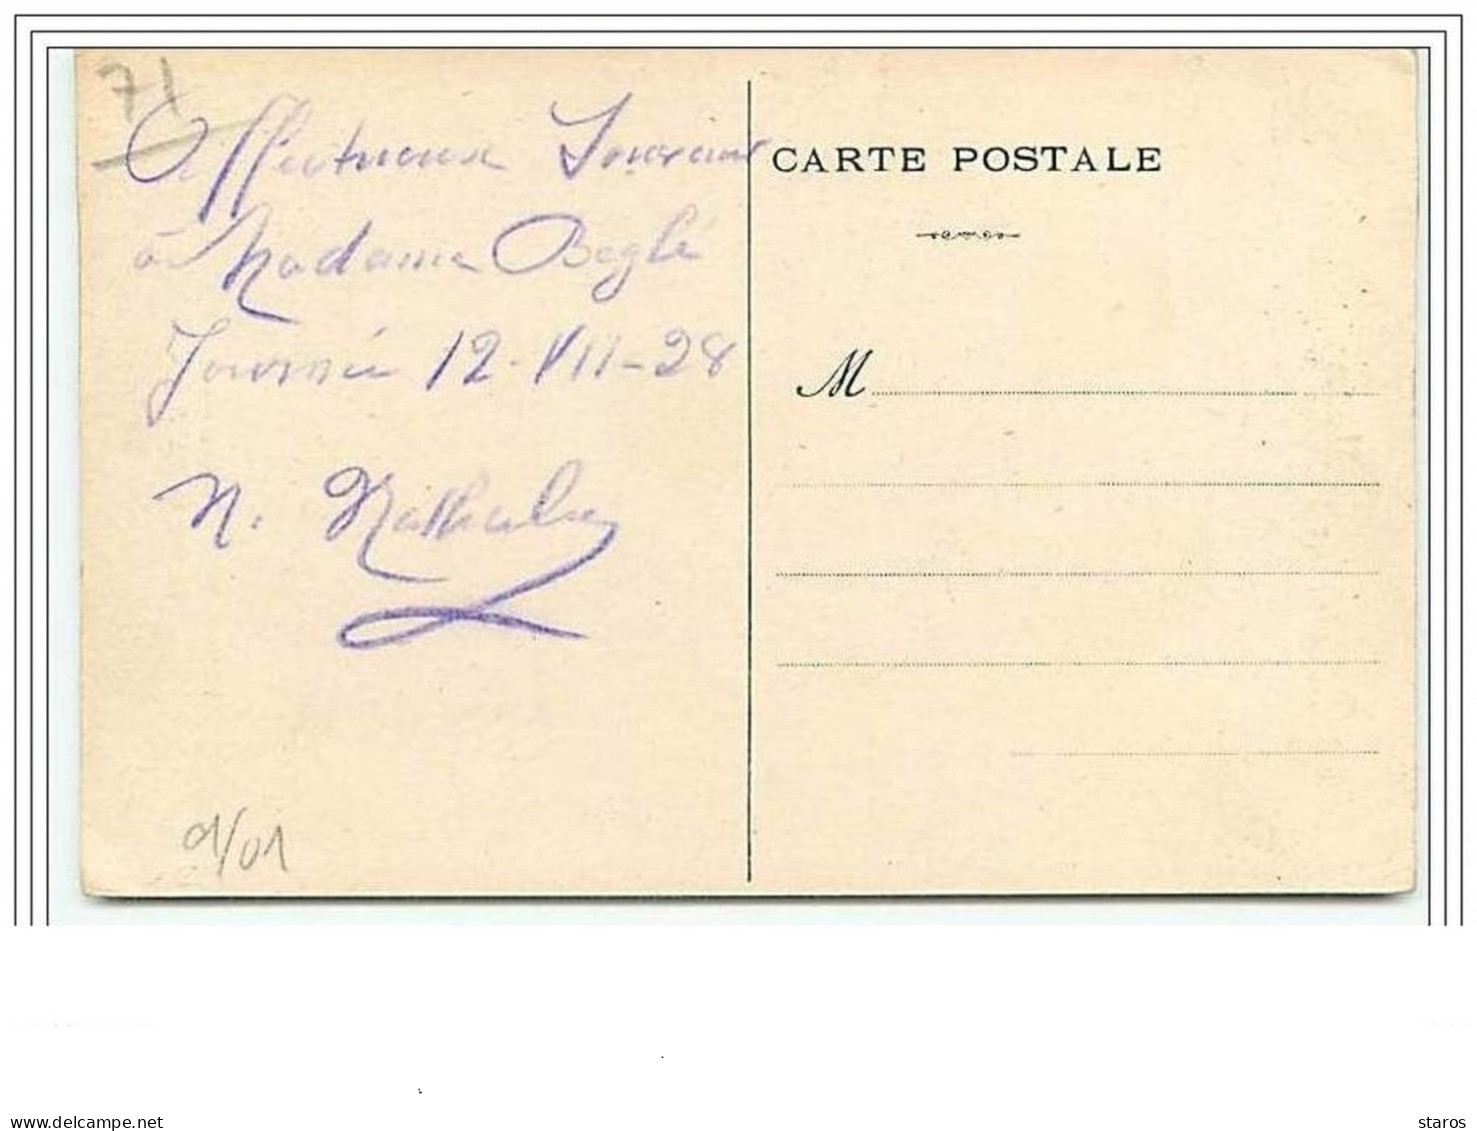 71
Affectueux Souvenir
à Madame Beglé
Journée 12-VII-28
N.
9/01
CARTE POSTALE
M
delcampe.net
staros